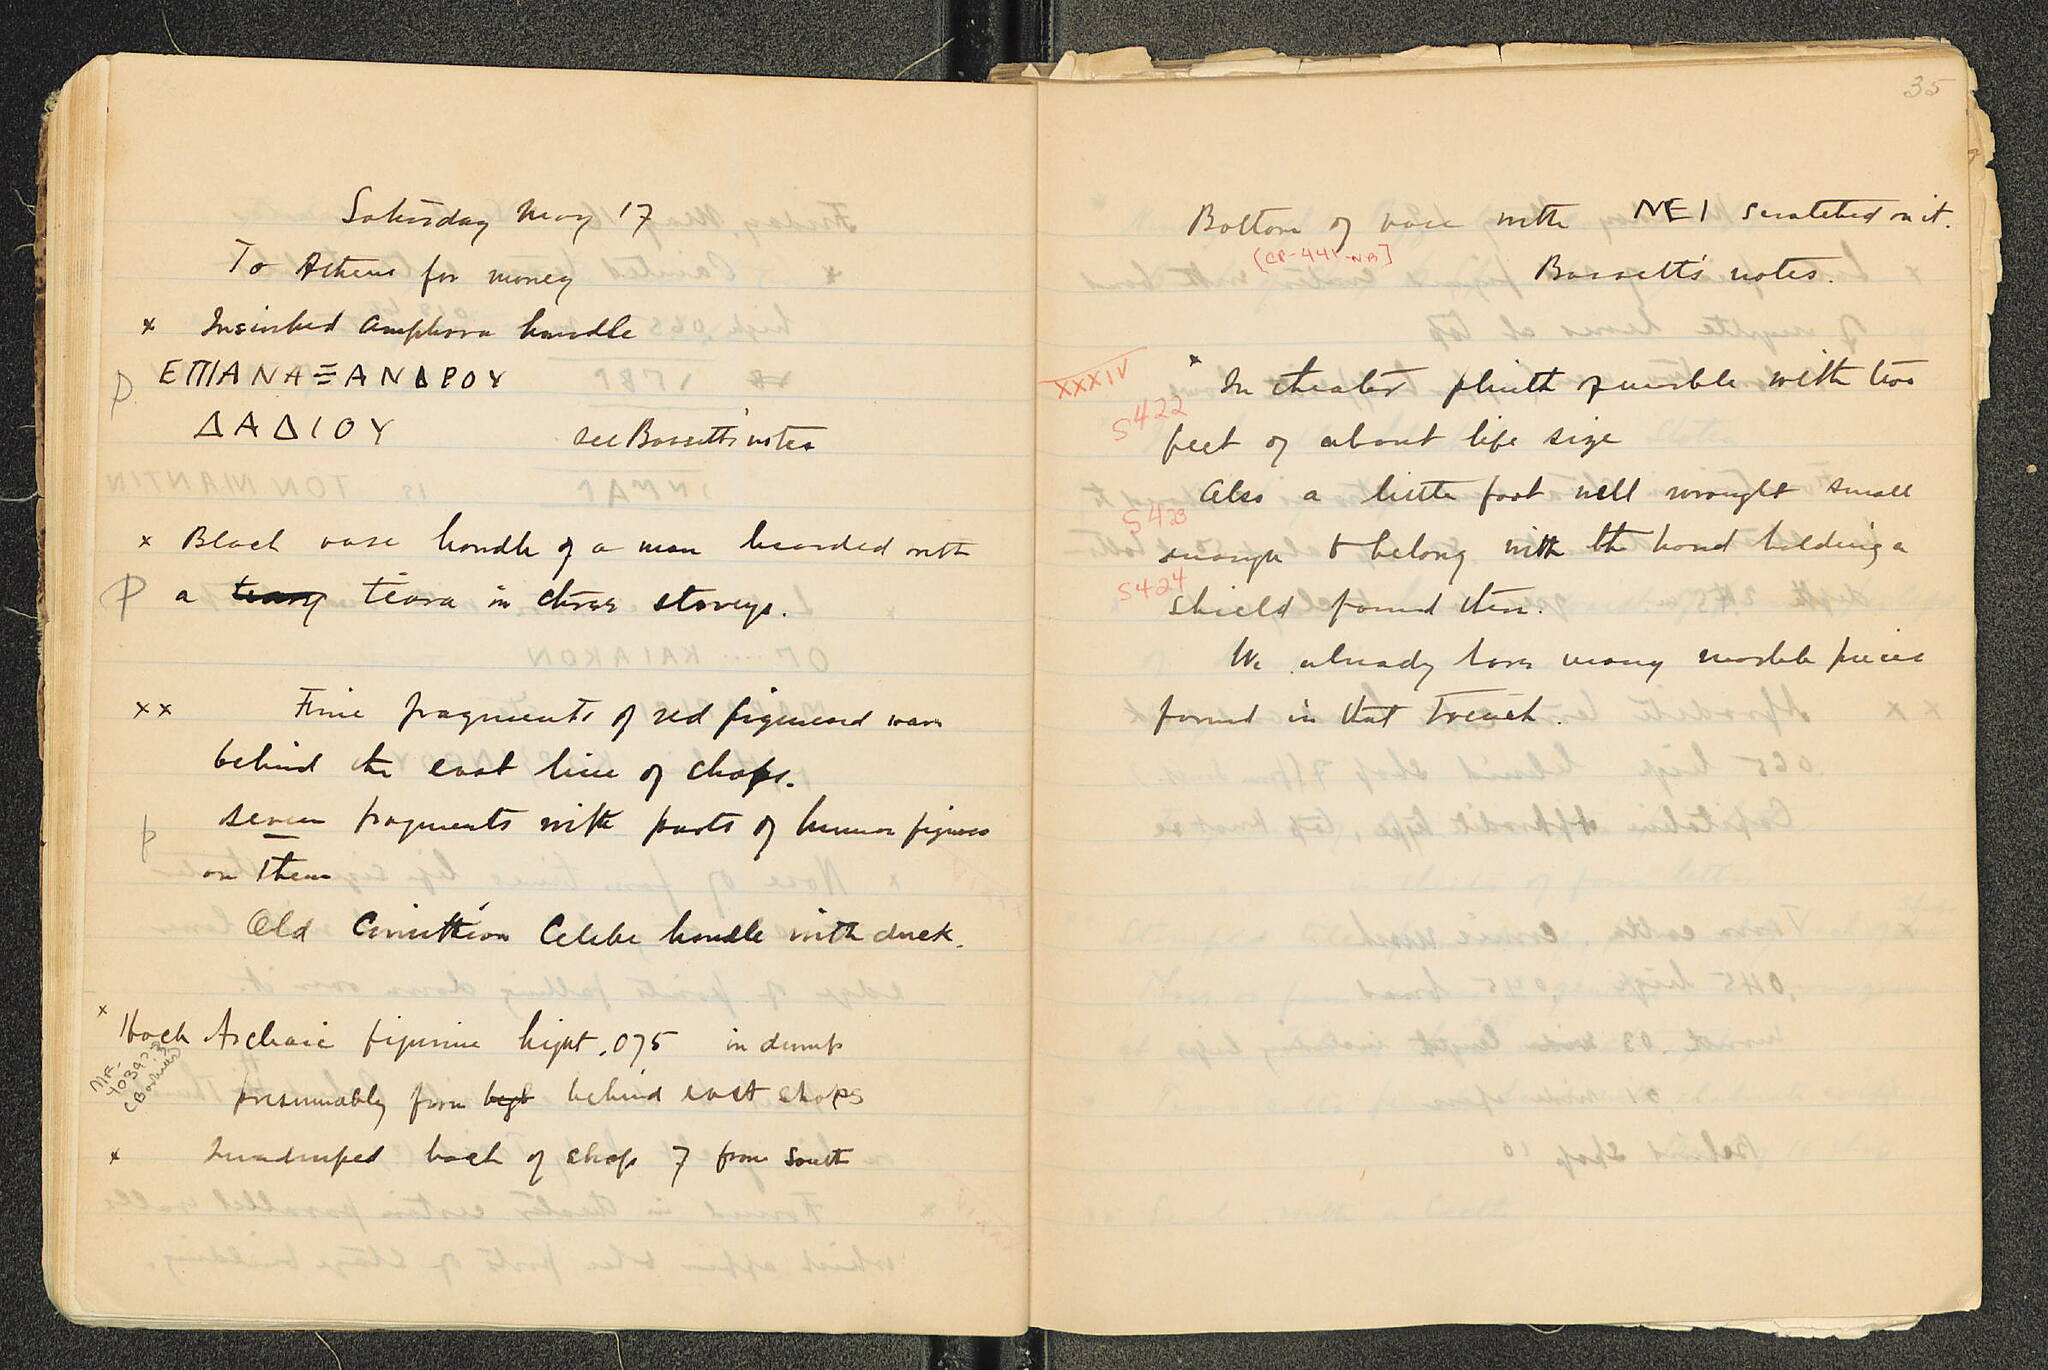 Saturday May 17
To Athens for money
x Inscribed amphora handle
p ΕΠΙΑΝΑΞΑΝΔΡΟΥ
ΔΑΔΙΟΥ see Bassett's notes
x Black vase handle of a man bearded with
p a tiara in three storeys.
xx Fine fragments of red figured ware
behind the east line of shops.
p seven fragments with parts of human figures
on them
Old Corinthian Celebe handle with duck.
x Archaic figurine hight .075 in dump
MF-
presumably from behind east shops
x Quadruped back of shop 7 from south
35
Bottom of vase with NEI scratched on it.
[CP-441-NB] Bassett's notes.
XXXIV
x In theater plinth of marble with two
S422
feet of about life size
Also a little foot well wrought small
S423
enough to belong with the hand holding a
S424
shield found then.
We already have many marble pieces
found in that trench.